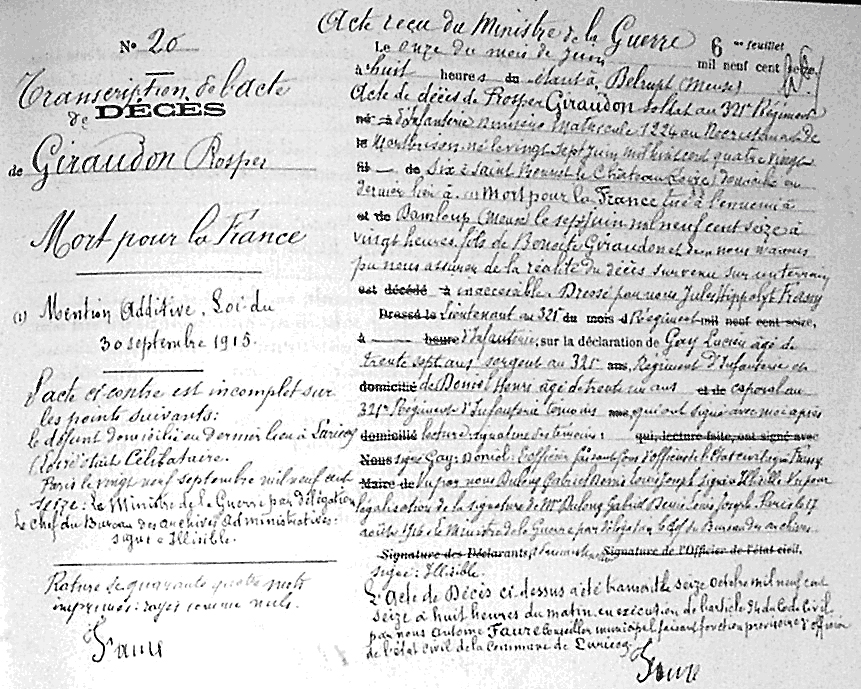 Nº 20
Transcription de l'acte
de DÉCÈS
de Giraudon Prosper
Mort pour la France
(1) Mention Additive. Loi du
30 septembre 1915.
L'acte ci contre est incomplet sur
les points suivants:
le défunt domicilié en dernier lieu à Luriecq
(Loire) était Célibataire.
Paris le vingt neuf septembre mil neuf cent
seize: Le Ministre de la Guerre par délégation
Le Chef du Bureau des archives administratives:
signé: Illisible.
Rature de quarante quatre mots
imprimés: rayés comme nuls.
Faure
Acte reçu du Ministre de la Guerre
6 me feuillet
Le onze du mois de juin mil neuf cent seize
à huit heures du étant à Belrupt (Meuse)
Acte de décès de Prosper Giraudon soldat au 321e Régiment
né à d'infanterie numéro matricule 1224 au Recrutement de
le Montbrison, né le vingt sept juin mil huit cent quatre vingt
fils de six à Saint Bonnet le Château (Loire) domicilié en
dernier lieu à "Mort pour la France" tué à l'ennemi à
et de Damloup (Meuse) le sept juin mil neuf cent seize à
vingt heures, fils de Benoite Giraudon et de nous n'avons
pu nous assurer de la réalité du décès survenu sur un terrain
est décédé à inaccessible. Dressé par nous Jules Hippolyt
Dressé le Lieutenant au 321e du mois d Régiment mil neuf cent seize,
à heure d'Infanterie, sur la déclaration de Gay Lucien âgé de
trente sept ans, sergent au 321e ans, Régiment d'Infanterie et
domicilié de Doniol Henri âgé de trente un ans et de caporal au
321e Régiment d'Infanterie témoins ans, qui ont signé avec moi après
domicilié lecture. signature des témoins: qui, lecture faite, ont signé avec
Nous signé Gay: Doniol: L'officier faisant fons d'officier de l'état civil signé
Maire de Vu par nous Dulong Gabriel Denis Louis Joseph signé: Illisible Vu pour
légalisation de la signature de Mr Dulong Gabriel Denis Louis Joseph. Paris le 17
août 1916 le Ministre de la Guerre par délégation le Chef du Bureau des archives
Signature des Déclarants, administratives Signature de l'Officier de l'état civil,
signé: Illisible.
L'Acte de Décès ci-dessus a été transcrit le seize octobre mil neuf cent
seize à huit heures du matin, en exécution de l'article 94 du Code Civil
par nous Antoine Faure Conseiller municipal faisant fonction provisoire d'officier
de l'état civil de la commune de Luriecq
Faure